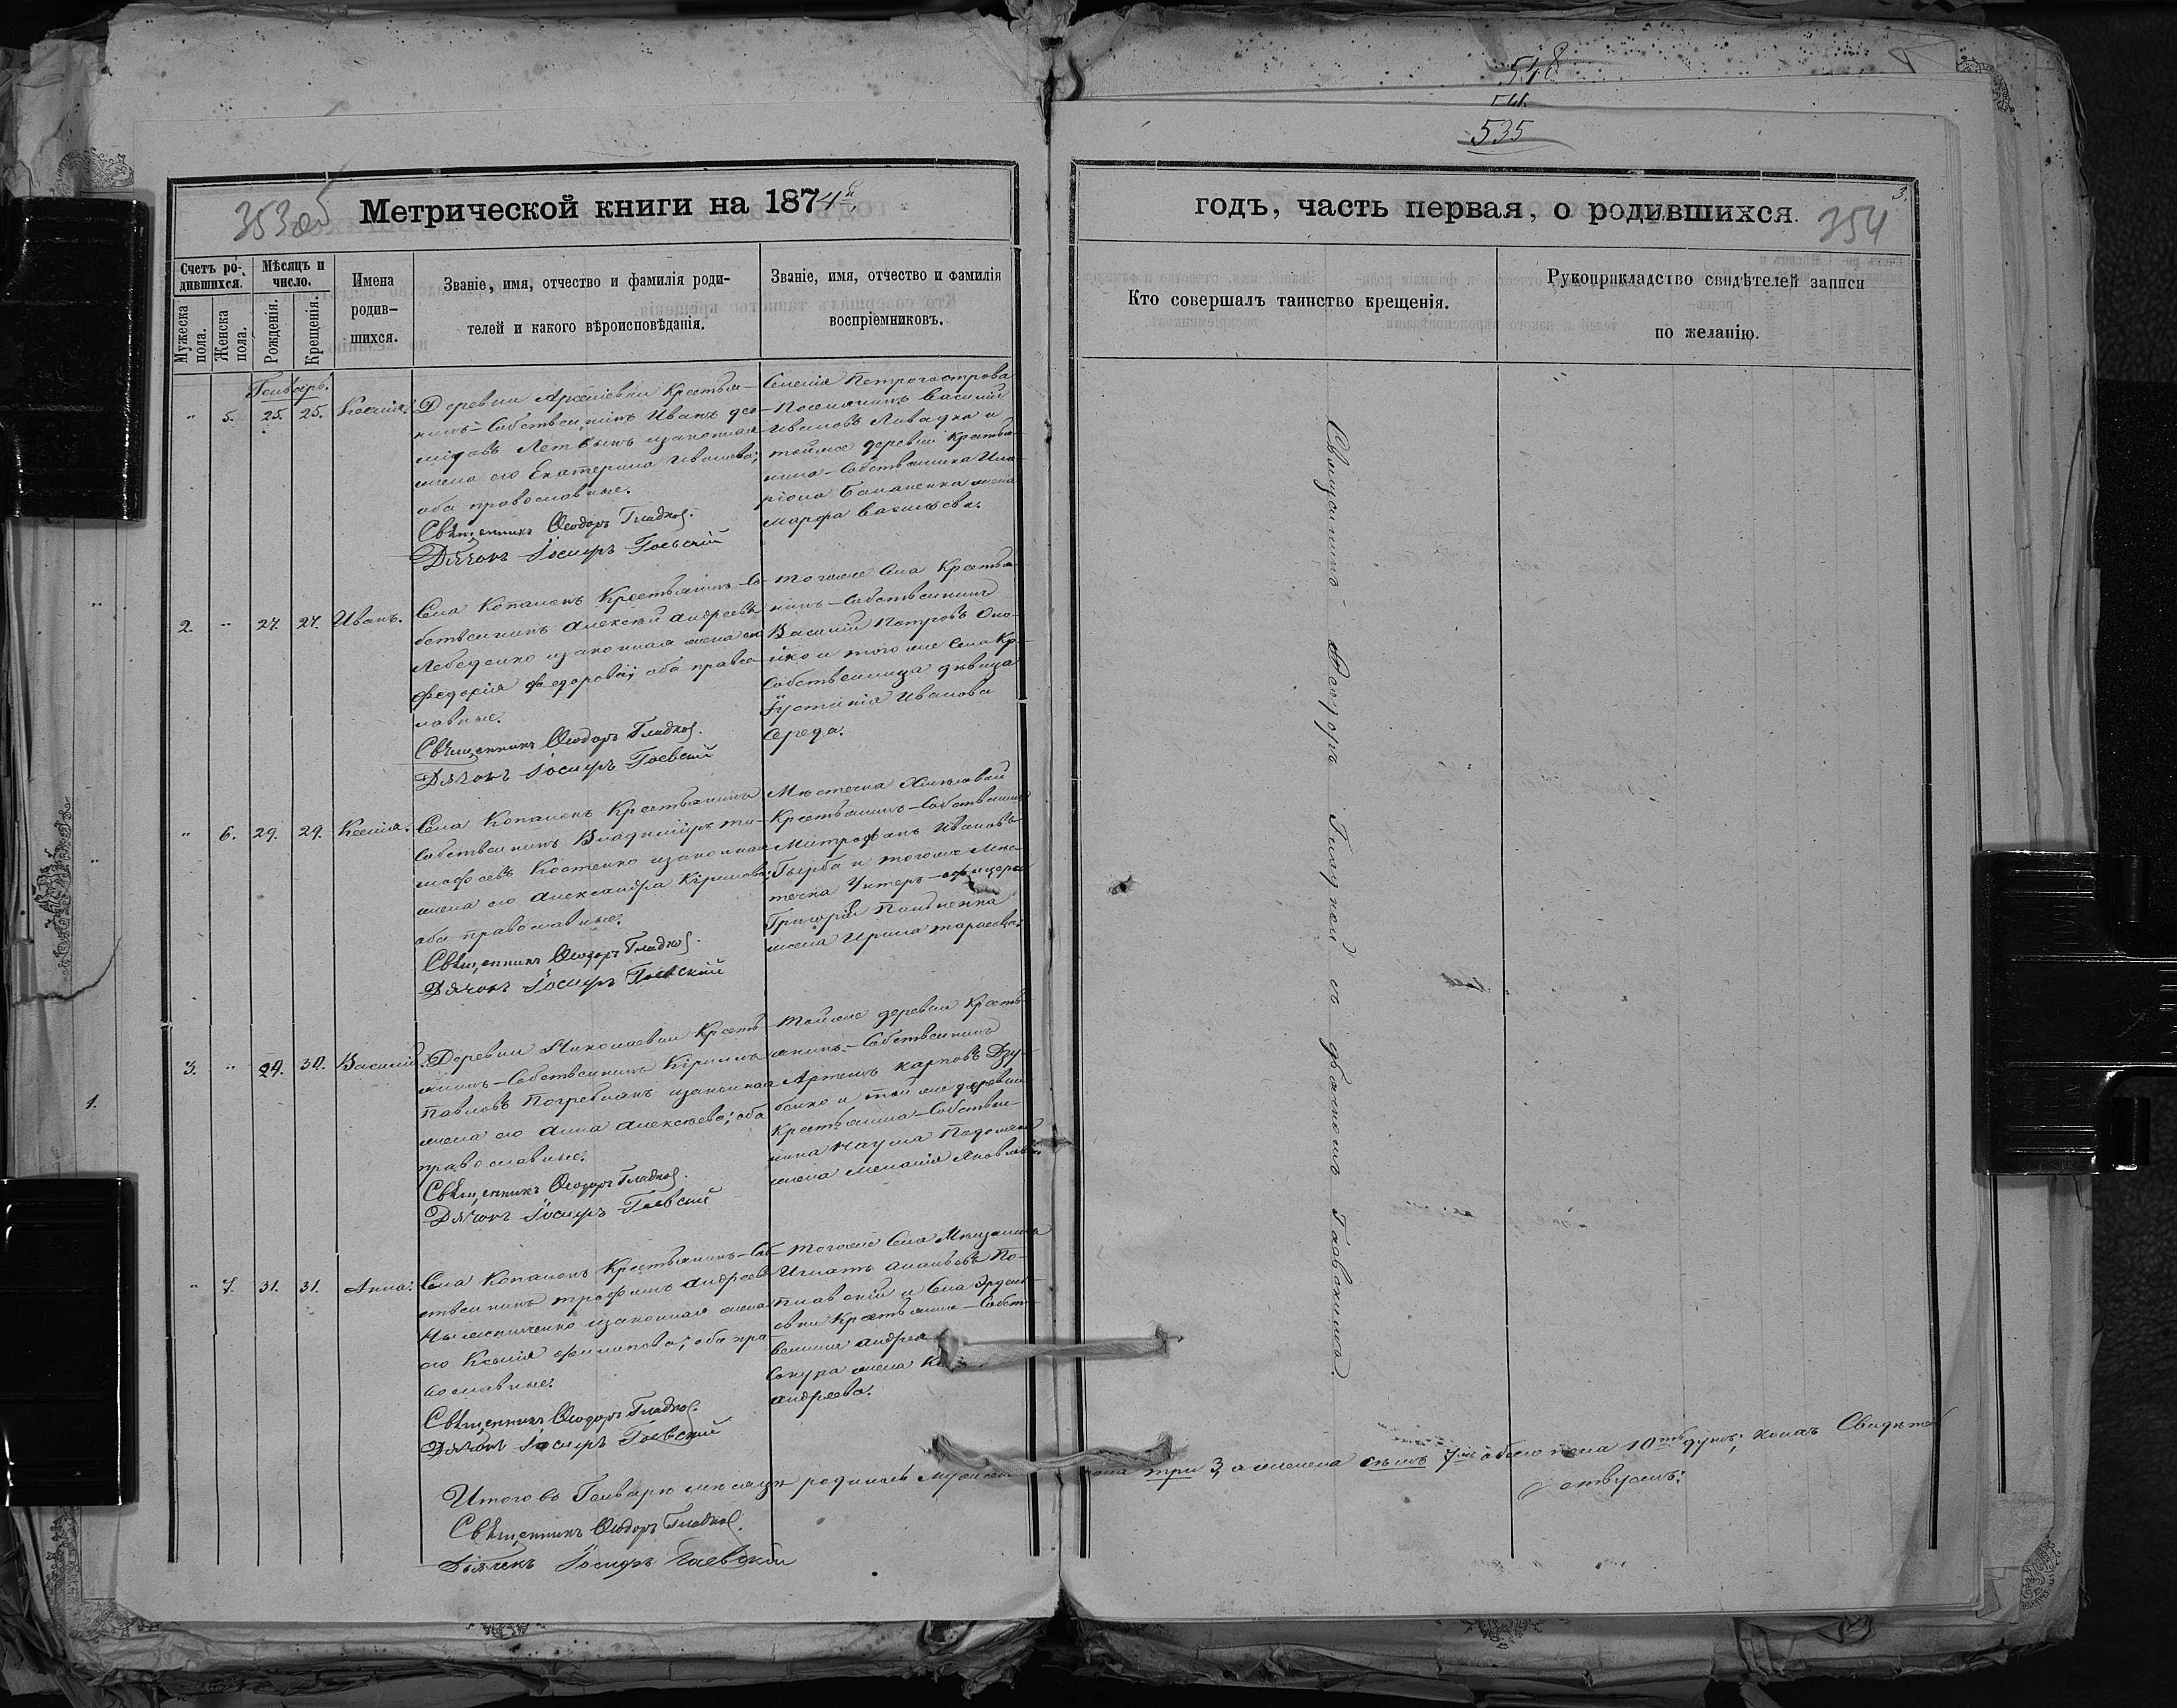 548
535
353 об
Метрической книги на 1874й
Счетъ ро-
дившихся.
Мѣсяцъ и
число.
Мужеска
пола.
Женска
пола.
Рожденія.
Крещенія.
Имена
родив-
шихся.
Званіе, имя, отчество и фамилія роди-
телей и какого вѣроисповѣданія.
Званіе, имя, отчество и фамилія
воспріемниковъ.
Генварь.
" 5. 25. 25. Ксенія.
Деревни Крестья-
нинъ-Собственникъ Иванъ
законная
жена его Екатерина Иванова;
оба православные.
Священникъ Ѳеодоръ Гладкой.
Дячокъ Іосифъ Гаевскій
Селенія Петроострова
Поселянинъ Василій
Ивановъ Ливадна и
тойже деревни Крестья-
нина-Собственника Ила-
ріона жена
Марфа Васильева.
2. " 27. 27. Иванъ.
Села Копанокъ Крестьянинъ-Со-
бственникъ Алексей Андреевъ
Лебеденко законная жена его
Федосія Федорова; оба правос-
лавные.
Священникъ Ѳеодоръ Гладкой.
Дячокъ Іосифъ Гаевскій
тогоже Села Крестья-
нинъ-Собственникъ
Василій Петровъ Оно-
йко и того же Села Кр-
Собственница дѣвица
Іустинія Иванова
Середа.
" 6. 29. 29. Ксенія.
Села Копанокъ Крестьянинъ
Собственникъ Владиміръ Ти-
мофеевъ Костенко законная
жена его Александра Кирилова;
оба православные.
Священникъ Ѳеодоръ Гладкой.
Дячокъ Іосифъ Гаевскій
Мѣстечка
Крестьянинъ-Собственникъ
Митрофанъ Ивановъ
Гырба и тогоже Мѣс-
течка Унтеръ-офицера
Григорія
жена Ирина Тарасова.
3. " 29. 30. Василій.
Деревни Николаевки Крестья-
янинъ-Собственникъ Кирилъ
Павловъ Погребнякъ законная
жена его Анна Алексеева; оба
православные.
Священникъ Ѳеодоръ Гладкой.
Дячокъ Іосифъ Гаевскій
Тойже деревни Кресть-
янинъ-Собственникъ
Артемъ Карповъ Дзу-
бенко и той же деревни
Крестьянина-Собствен-
ника Наума
жена Меланія Яковлева
" 7. 31. 31. Анна.
Села Копанокъ Крестьянинъ-Соб-
ственникъ Трофимъ Андреевъ
законная жена
его Ксенія Филипова; оба пра-
вославные.
Священникъ Ѳеодоръ Гладкой.
Дячокъ Іосифъ Гаевскій
Тогоже Села Мѣщанинъ
Игнатъ Ананьевъ По-
плавскій и Села Эрдели-
евки Крестьянина-Собст-
венника Андрея
Сокура жена
Андреева.
Итого въ Генварѣ мѣсяцѣ родилось мужеска
Священникъ Ѳеодоръ Гладкой.
Дячекъ Іосифъ Гаевскій
годъ, часть первая, о родившихся.
3.
354
Кто совершалъ таинство крещенія.
Рукоприкладство свидѣтелей записи
по желанію.
Священникъ Ѳеодоръ Гладкой съ дьячкомъ Гаевскимъ.
пола три 3, а женска семь 7 обоего пола 10ть душъ; копахъ Свидѣтель
ствуемъ:
1.